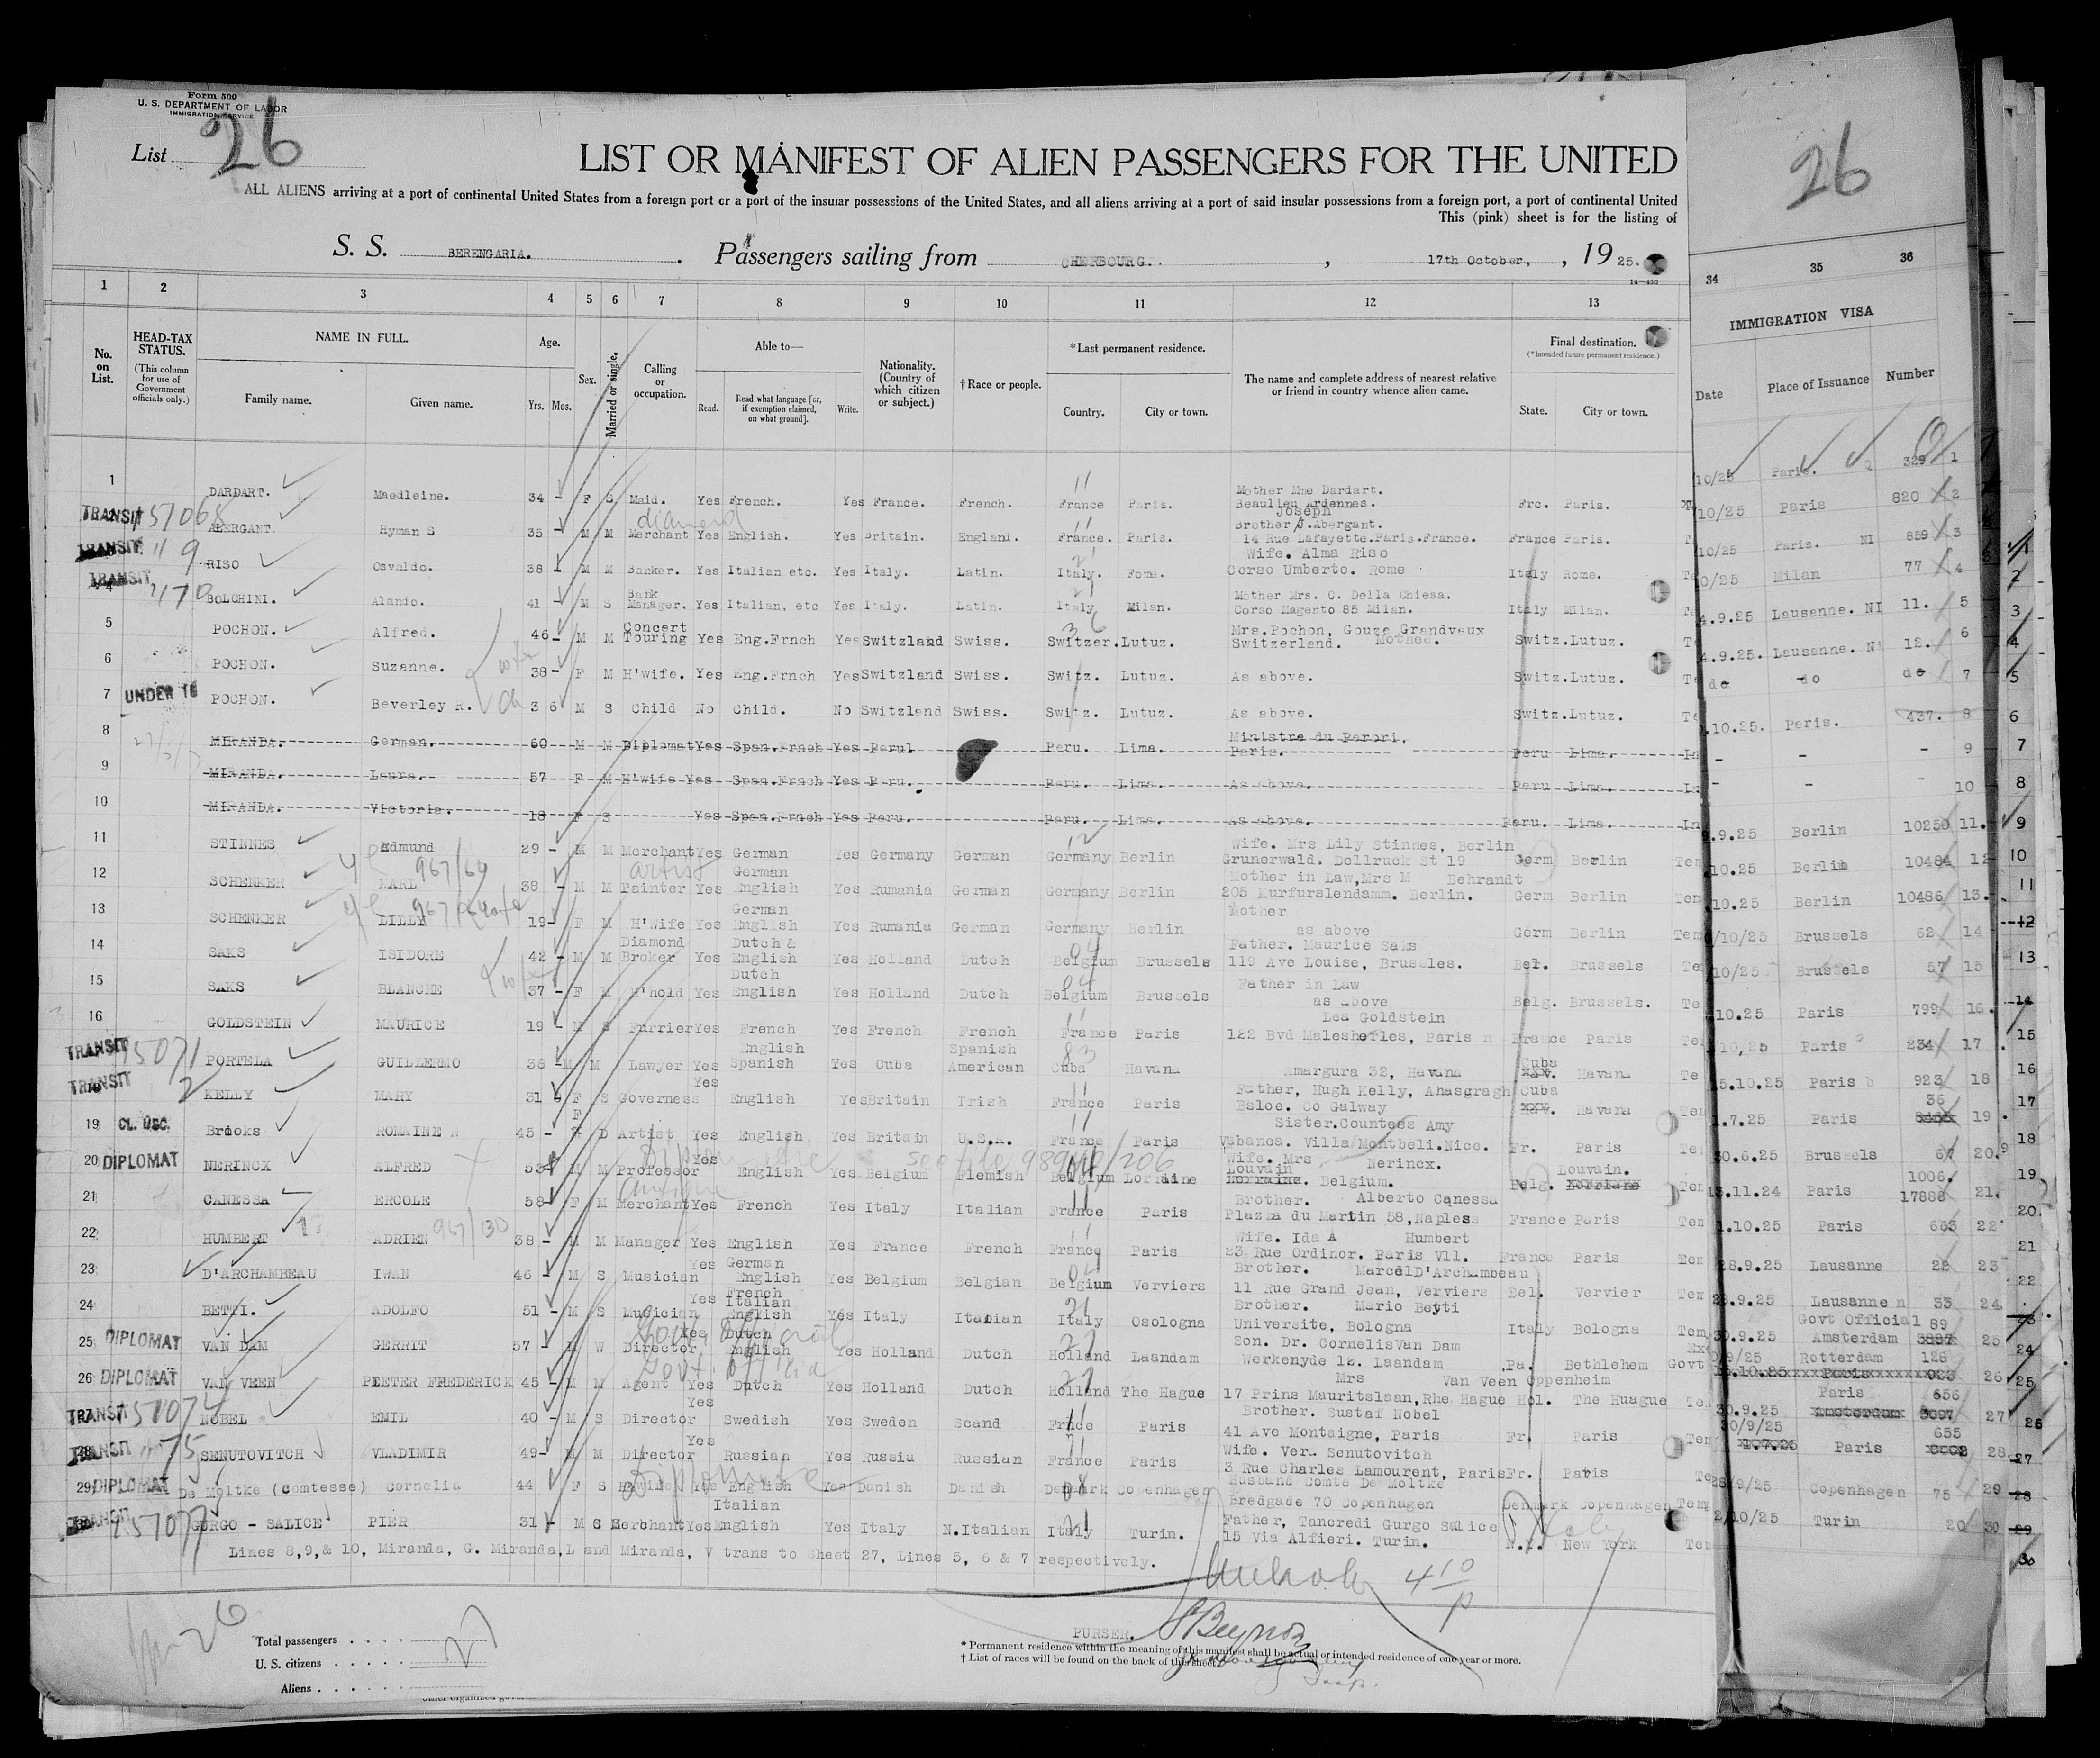 Form 500
U. S. DEPARTMENT OF LABOR
IMMIGRATION SERVICE
List 26
26
LIST OR MANIFEST OF ALIEN PASSENGERS FOR THE UNITED
ALL ALIENS arriving at a port of continental United States from a foreign port or a port of the insular possessions of the United States, and all aliens arriving at a port of said insular possessions from a foreign port, a port of continental United
This (pink) sheet is for the listing of
S. S. BERENGARIA. Passengers sailing from CHERBOURG. , 17th October, , 19 25.
14-430
1 2 3 4 5 6 7 8 9 10 11 12 13 34 35 36
No. on List.
HEAD-TAX STATUS.
(This column for use of Government officials only.)
NAME IN FULL.
Family name. Given name.
Age.
Yrs. Mos.
Sex.
Married or single.
Calling or occupation.
Able to—
Read. Read what language [or, if exemption claimed, on what ground]. Write.
Nationality. (Country of which citizen or subject.)
† Race or people.
*Last permanent residence.
Country. City or town.
The name and complete address of nearest relative or friend in country whence alien came.
Final destination.
(*Intended future permanent residence.)
State. City or town.
IMMIGRATION VISA
Date Place of Issuance Number
1 DARDART. Maedleine. 34 - F S Maid. Yes French. Yes France. French. France Paris. Mother Mme Dardart. Beaulieu Ardennes. Frc. Paris. 10/25 Paris. 329 1
TRANSIT ABERGANT. Hyman S 35 - M M diamond Merchant Yes English. Yes Britain. England. France. Paris. Joseph Brother J.Abergant. 14 Rue Lafayette.Paris.France. France Paris. 10/25 Paris 820 2
TRANSIT RISO Osvaldo. 38 - M M Banker. Yes Italian etc. Yes Italy. Latin. Italy. Rome. Wife. Alma Riso Corso Umberto. Rome Italy Rome. 10/25 Paris. NI 859 3
TRANSIT 4 BOLCHINI. Alando. 41 - M S Bank Manager. Yes Italian, etc Yes Italy. Latin. Italy Milan. Mother Mrs. C. Della Chiesa. Corso Magento 85 Milan. Italy Milan. 0/25 Milan 77 4
5 POCHON. Alfred. 46 - M M Concert Touring Yes Eng.Frnch Yes Switzland Swiss. Switzer. Lutuz. Mrs.Pochon, Gouze Grandvaux Switzerland. Mother. Switz. Lutuz. 4.9.25 Lausanne. NI 11. 5
6 POCHON. Suzanne. wife 38 - F M H'wife. Yes Eng.Frnch Yes Switzland Swiss. Switz. Lutuz. As above. Switz. Lutuz. 4.9.25. Lausanne. NI 12. 6
7 UNDER 16 POCHON. Beverley R. ch 3 6 M S Child No Child. No Switzland Swiss. Switz. Lutuz. As above. Switz. Lutuz. do do do 7
8 MIRANDA. German. 60 - M M Diplomat Yes Span.Frnch Yes Perul Peru. Lima. Ministre du Perori. Paris. Peru Lima. .10.25. Paris. 437. 8
9 MIRANDA. Laura. 57 F M H'wife Yes Span.Frnch Yes Peru. Peru. Lima. As above. Peru Lima. - - - 9
10 MIRANDA. Victoria. 18 F S Yes Span.Frnch Yes Peru. Peru. Lima. As above. Peru. Lima. - - - 10
11 STINNES Edmund 29 - M M Merchant Yes German Yes Germany German Germany Berlin Wife. Mrs Lily Stinnes, Berlin Grunerwald. Dellruck St 19 Germ Berlin 9.9.25 Berlin 10250 11.
12 SCHENKER KARL 967/64 38 - M M artist Painter Yes German English Yes Rumania German Germany Berlin Mother in Law,Mrs M Behrandt 205 Kurfurslendamm. Berlin. Germ Berlin .10.25 Berlin 10484 12
13 SCHENKER LILLY 19 - F M H'wife Yes German English Yes Rumania German Germany Berlin Mother as above Germ Berlin .10.25 Berlin 10486 13.
14 SAKS ISIDORE 42 - M M Diamond Broker Yes Dutch & English Yes Holland Dutch Belgium Brussels Father. Maurice Saks 119 Ave Louise, Brussles. Bel. Brussels /10/25 Brussels 62 14
15 SAKS BLANCHE wife 37 - F M H'hold Yes Dutch English Yes Holland Dutch Belgium Brussels Father in Law as above Belg. Brussels. 10/25 Brussels 57 15
16 GOLDSTEIN MAURICE 19 - M S Furrier Yes French Yes French French France Paris Lea Goldstein 122 Bvd Maleshefles, Paris France Paris 10.25 Paris 799 16.
TRANSIT 15071 PORTELA GUILLERMO 38 - M M Lawyer Yes English Spanish Yes Cuba Spanish American Cuba Havana Amargura 32, Havana Cuba Havana 10,25 Paris 234 17
TRANSIT KELLY MARY 31 - F S Governess Yes English Yes Britain Irish France Paris Father, Hugh Kelly, Ahasgragh Bsloe. Co Galway Cuba Havana 15.10.25 Paris 923 18
19 CL. USC. Brooks ROMAINE 45 - F D Artist Yes English Yes Britain U.S.A. France Paris Sister.Countess Amy Vabanca. Villa Montbeli.Nice. Fr. Paris 1.7.25 Paris 36 19.
20 DIPLOMAT NERINCX ALFRED 53 M M Professor Yes English Yes Belgium Flemish Belgium Lorraine Wife. Mrs Nerincx. Louvain Lorraine. Belgium. Belg. Louvain. 30.6.25 Brussels 67 20.
21 CANESSA ERCOLE 58 - F M Merchant Yes French Yes Italy Italian France Paris Brother. Alberto Canessa Plazza du Martin 58,Napless France Paris 13.11.24 Paris 1006. 17888 21.
22 HUMBERT ADRIEN 967/130 38 - M M Manager Yes English Yes France French France Paris Wife. Ida A Humbert 23 Rue Ordinor. Paris Vll. France Paris 1.10.25 Paris 663 22
23 D'ARCHAMBEAU IWAN 46 - M S Musician Yes German English Yes Belgium Belgian Belgium Verviers Brother. Marcel D'Archambeau 11 Rue Grand Jean, Verviers Bel. Vervier 28.9.25 Lausanne 22 23
24 BETTI. ADOLFO 51 - M S Musician Yes French Italian English Yes Italy Italian Italy Osologna Brother. Mario Betti Universite, Bologna Italy Bologna 28.9.25 Lausanne 33 24.
25 DIPLOMAT VAN DAM GERRIT 57 - M W Director Yes Dutch English Yes Holland Dutch Holland Laandam Son. Dr. Cornelis Van Dam Werkenyde 12. Laandam .Pa. Bethlehem Govt Official 30.9.25 Amsterdam 89 25
26 DIPLOMAT VAN VEEN PIETER FREDERICK 45 - M M Agent Yes Dutch Yes Holland Dutch Holland The Hague Mrs Van Veen Oppenheim 17 Prins Mauritslaan,Rhe Hague Hol. The Huague 9/25 Rotterdam 128 26
TRANSIT 15074 NOBEL EMIL 40 - M S Director Yes Swedish Yes Sweden Scand France Paris Brother. Sustaf Nobel 41 Ave Montaigne, Paris Fr. Paris 30.9.25 Paris 656 27
TRANSIT 75 SENUTOVITCH VLADIMIR 49 - M M Director Yes Russian Yes Russia Russian France Paris Wife. Vera Senutovitch 3 Rue Charles Lamourent, Paris Fr. Paris 30/9/25 Paris 655 28
29 DIPLOMAT De Moltke (comtesse) Cornelia 44 F S H'wife Yes English Yes Danish Danish Denmark Copenhagen Husband Comte De Moltke Bredgade 70 Copenhagen Denmark Copenhagen 28/9/25 Copenhagen 75 29
TRANSIT 15077 GURGO - SALICE PIER 31 - M S Merchant Yes Italian English Yes Italy N.Italian Italy Turin. Father, Tancredi Gurgo Salice 15 Via Alfieri. Turin. N.Y. New York 2/10/25 Turin 20 30
Lines 8,9,& 10, Miranda, G. Miranda,L and Miranda, V trans to Sheet 27, Lines 5, 6 & 7 respectively.
Total passengers . . . .
U. S. citizens . . . . .
Aliens . . . . . . . . .
PURSER.
* Permanent residence within the meaning of this manifest shall be actual or intended residence of one year or more.
† List of races will be found on the back of this sheet.